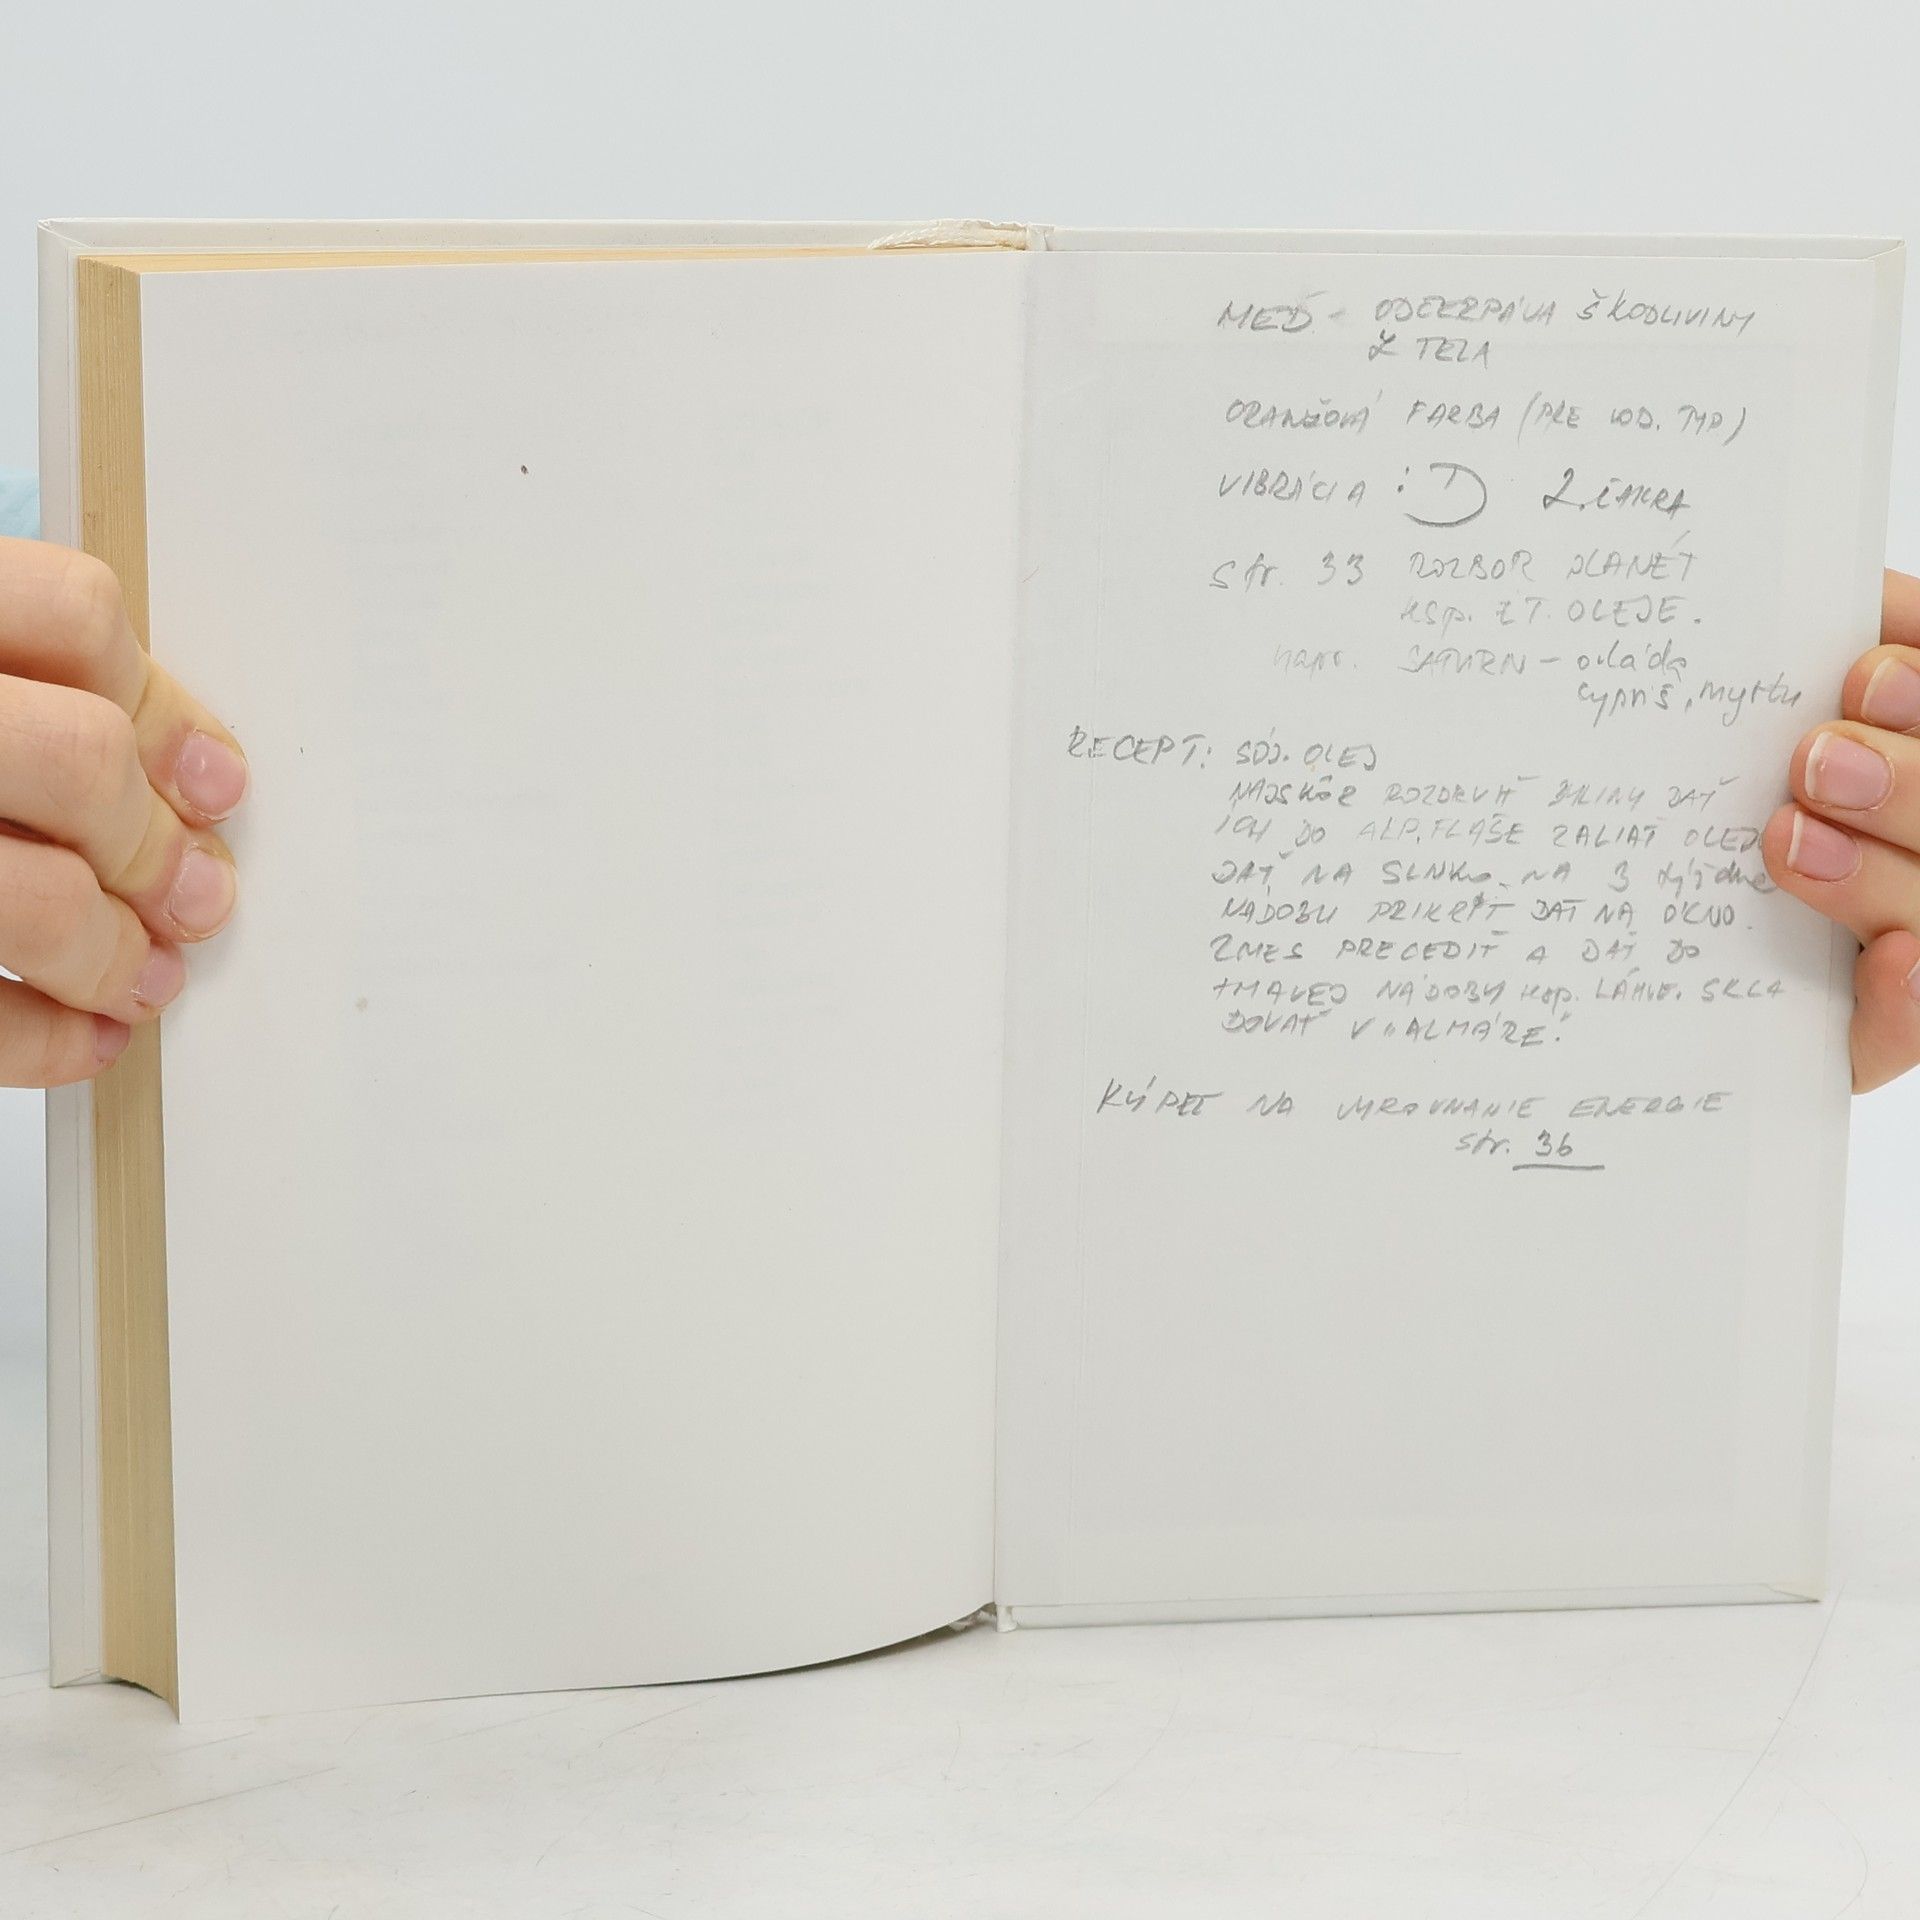 MEĎ - ODČERPÁVA ŠKODLIVINY
Z TELA
ORANŽOVÁ FARBA (PRE VOD. TYP)
VIBRÁCIA : D 2. ČAKRA
Str. 33 ROZBOR PLANÉT
resp. ÉT. OLEJE.
napr. SATURN - ovláda
cypriš, myrtu
RECEPT: SÓJ. OLEJ
NAJSKÔR ROZDRVIŤ BYLINY DAŤ
ICH DO ALP. FĽAŠE ZALIAŤ
DAŤ NA SLNKO NA 3 týždne
NÁDOBU PRIKRYŤ DAŤ NA OKNO.
ZMES PRECEDIŤ A DAŤ DO
TMAVEJ NÁDOBY resp. SKLA
DOVAŤ V "ALMÁRE!
KÚPEĽ NA VYROVNANIE ENERGIE
str. 36